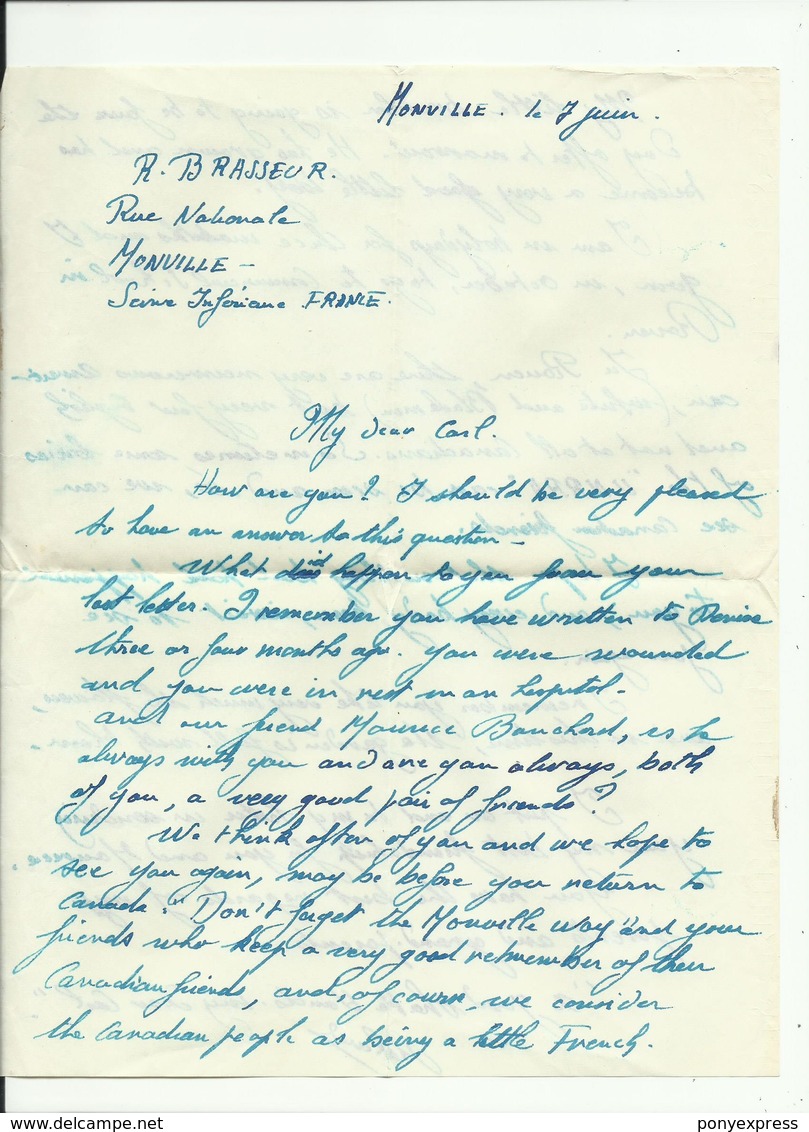 MONVILLE. le 7 juin.
R. BRASSEUR.
Rue Nationale
MONVILLE —
Seine Inférieure. FRANCE.
My dear Carl.
How are you? I should be very pleased
to have an answer to this question —
What did happen to you from your
last letter. I remember you have written to Denise
three or four months ago. you were wounded
and you were in rest in an hospital —
and our friend Maurice Bouchard, is he
always with you and are you always, both
of you, a very good pair of friends?
We think often of you and we hope to
see you again, may be before you return to
Canada. "Don't forget the Monville way" and your
friends who keep a very good remember of their
Canadian friends, and, of course, we consider
the Canadian people as being a little French.
ponyexpress